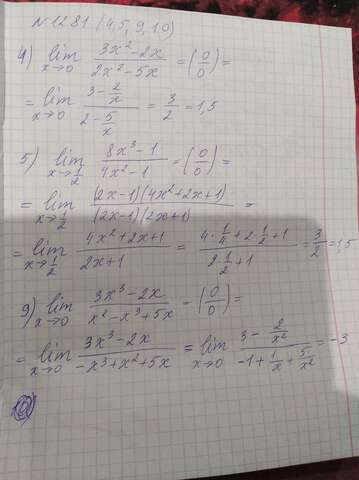 N1281 (4,5,9,10)
4) lim x→0 (3x²-2x)/(2x²-5x) = (0/0) =
= lim x→0 (3-2/x)/(2-5/x) = 3/2 = 1,5
5) lim x→1/2 (8x³-1)/(4x²-1) = (0/0) =
= lim x→1/2 ((2x-1)(4x²+2x+1))/((2x-1)(2x+1)) =
= lim x→1/2 (4x²+2x+1)/(2x+1) = (4·1/4+2·1/2+1)/(2·1/2+1) = 3/2 = 1,5
9) lim x→0 (3x³-2x)/(x²-x³+5x) = (0/0) =
= lim x→0 (3x³-2x)/(-x³+x²+5x) = lim x→0 (3-2/x²)/(-1+1/x+5/x²) = -3